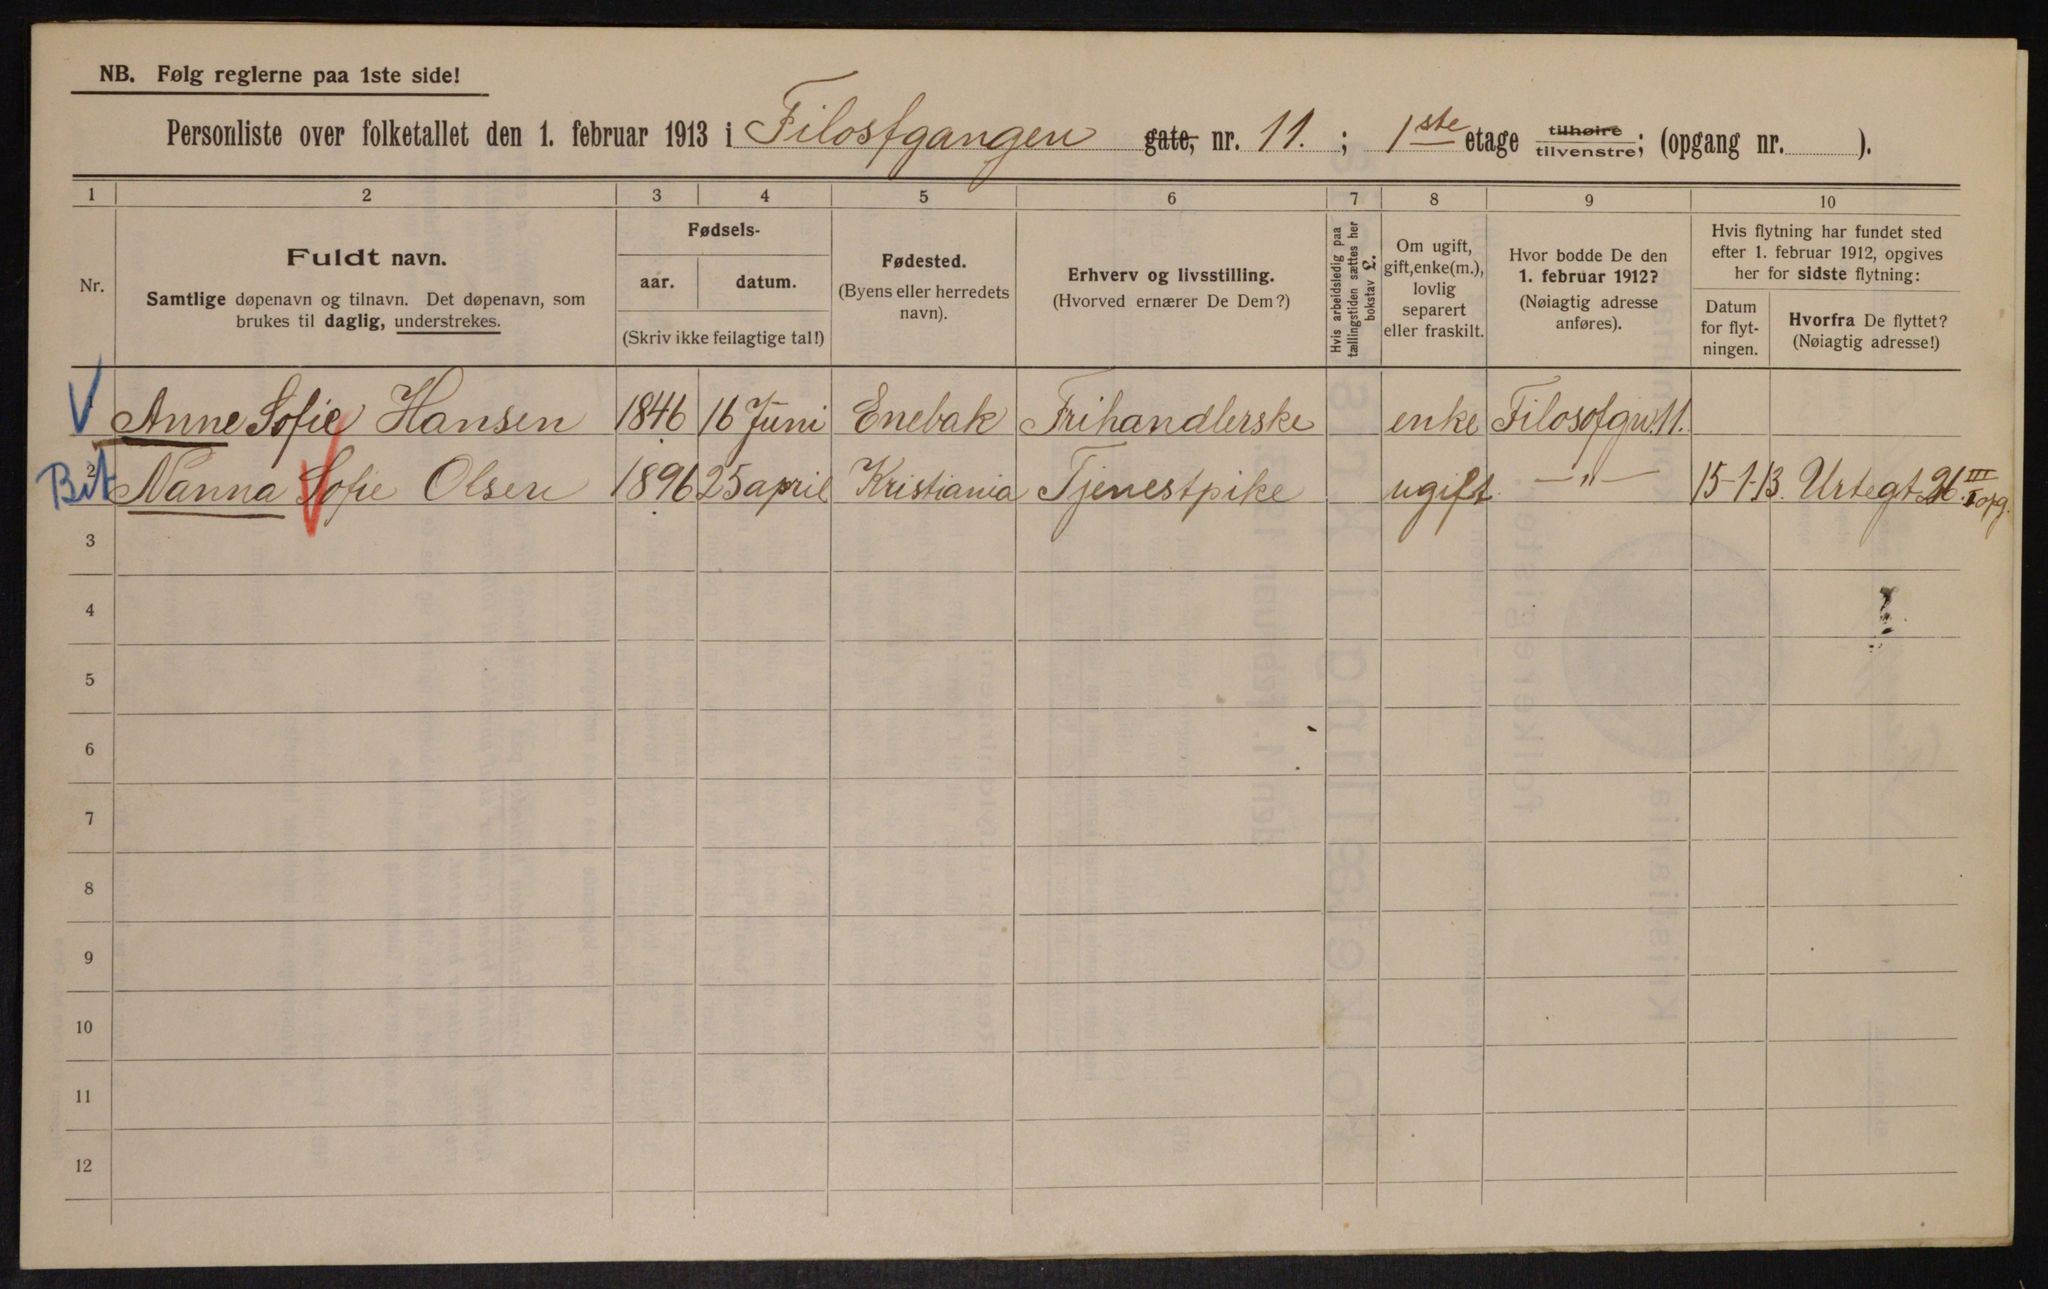 NB. Følg reglerne paa 1ste side!
Personliste over folketallet den 1. februar 1913 i Filosfgangen gate, nr. 11. ; 1ste etage tilhøire tilvenstre; (opgang nr. ).
1 2 3 4 5 6 7 8 9 10
Nr.
Fuldt navn.
Samtlige døpenavn og tilnavn. Det døpenavn, som
brukes til daglig, understrekes.
Fødsels-
aar. datum.
(Skriv ikke feilagtige tal!)
Fødested.
(Byens eller herredets
navn).
Erhverv og livsstilling.
(Hvorved ernærer De Dem?)
Hvis arbeidsledig paa
tællingstiden sættes her
bokstav L.
Om ugift,
gift, enke(m.),
lovlig
separert
eller fraskilt.
Hvor bodde De den
1. februar 1912?
(Nøiagtig adresse
anføres).
Hvis flytning har fundet sted
efter 1. februar 1912, opgives
her for sidste flytning:
Datum
for flyt-
ningen.
Hvorfra De flyttet?
(Nøiagtig adresse!)
Anne Sofie Hansen 1846 16 Juni Enebak Frihandlerske enke Filosofgn. 11.
2 Nanna Sofie Olsen 1896 25 april Kristiania Tjenestpike ugift —"— 15-1-13. Urtegt 26. III opg.
3
4
5
6
7
8
9
10
11
12